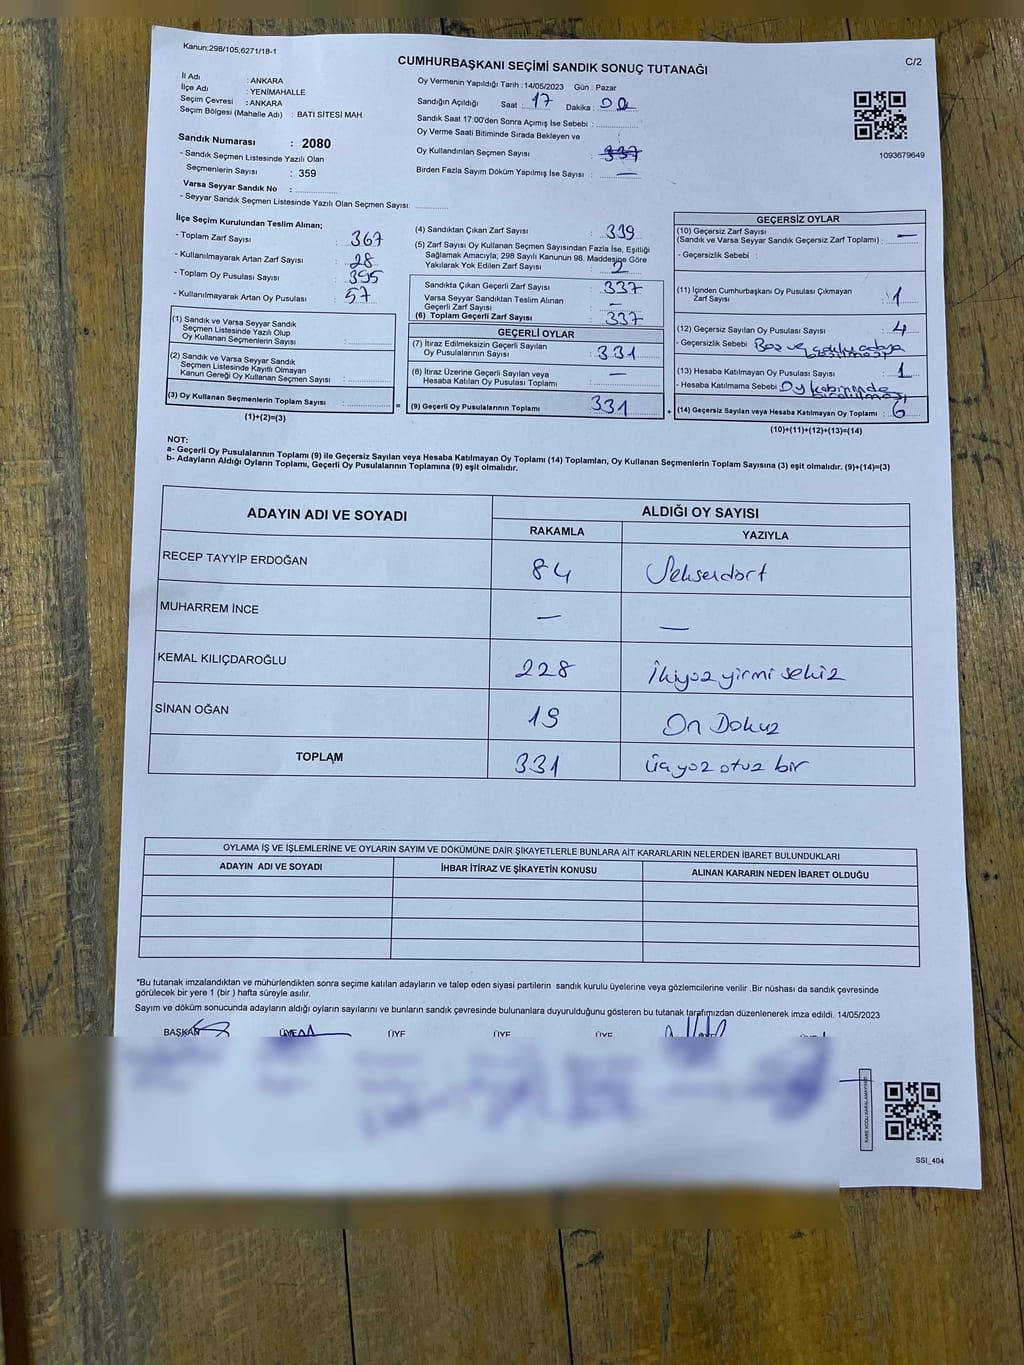 Kanun;298/105;6271/18-1
CUMHURBAŞKANI SEÇİMİ SANDIK SONUÇ TUTANAĞI
C/2
İl Adı : ANKARA
İlçe Adı : YENİMAHALLE
Seçim Çevresi : ANKARA
Seçim Bölgesi (Mahalle Adı) : BATI SİTESİ MAH.
Sandık Numarası : 2080
- Sandık Seçmen Listesinde Yazılı Olan
Seçmenlerin Sayısı : 359
Varsa Seyyar Sandık No :
- Seyyar Sandık Seçmen Listesinde Yazılı Olan Seçmen Sayısı:
Oy Vermenin Yapıldığı Tarih : 14/05/2023 Gün : Pazar
Sandığın Açıldığı Saat : 17 Dakika : 00
Sandık Saat 17:00'den Sonra Açımış İse Sebebi :
Oy Verme Saati Bitiminde Sırada Bekleyen ve
Oy Kullandırılan Seçmen Sayısı : 337
Birden Fazla Sayım Döküm Yapılmış İse Sayısı : —
1093679649
İlçe Seçim Kurulundan Teslim Alınan;
- Toplam Zarf Sayısı : 367
- Kullanılmayarak Artan Zarf Sayısı : 28
- Toplam Oy Pusulası Sayısı : 395
- Kullanılmayarak Artan Oy Pusulası : 57
(1) Sandık ve Varsa Seyyar Sandık
Seçmen Listesinde Yazılı Olup
Oy Kullanan Seçmenlerin Sayısı :
(2) Sandık ve Varsa Seyyar Sandık
Seçmen Listesinde Kayıtlı Olmayan
Kanun Gereği Oy Kullanan Seçmen Sayısı :
(3) Oy Kullanan Seçmenlerin Toplam Sayısı :
(1)+(2)=(3)
(4) Sandıktan Çıkan Zarf Sayısı : 339
(5) Zarf Sayısı Oy Kullanan Seçmen Sayısından Fazla İse, Eşitliği
Sağlamak Amacıyla; 298 Sayılı Kanunun 98. Maddesine Göre
Yakılarak Yok Edilen Zarf Sayısı : 2
Sandıkta Çıkan Geçerli Zarf Sayısı : 337
Varsa Seyyar Sandıktan Teslim Alınan
Geçerli Zarf Sayısı : —
(6) Toplam Geçerli Zarf Sayısı : 337
GEÇERLİ OYLAR
(7) İtiraz Edilmeksizin Geçerli Sayılan
Oy Pusulalarının Sayısı : 331
(8) İtiraz Üzerine Geçerli Sayılan veya
Hesaba Katılan Oy Pusulası Toplamı : —
= (9) Geçerli Oy Pusulalarının Toplamı : 331
GEÇERSİZ OYLAR
(10) Geçersiz Zarf Sayısı
(Sandık ve Varsa Seyyar Sandık Geçersiz Zarf Toplamı) : —
- Geçersizlik Sebebi :
(11) İçinden Cumhurbaşkanı Oy Pusulası Çıkmayan
Zarf Sayısı : 1
(12) Geçersiz Sayılan Oy Pusulası Sayısı : 4
- Geçersizlik Sebebi Boş ve
(13) Hesaba Katılmayan Oy Pusulası Sayısı : 1
- Hesaba Katılmama Sebebi : Oy kabininde
+ (14) Geçersiz Sayılan veya Hesaba Katılmayan Oy Toplamı : 6
(10)+(11)+(12)+(13)=(14)
NOT:
a- Geçerli Oy Pusulalarının Toplamı (9) ile Geçersiz Sayılan veya Hesaba Katılmayan Oy Toplamı (14) Toplamları, Oy Kullanan Seçmenlerin Toplam Sayısına (3) eşit olmalıdır. (9)+(14)=(3)
b- Adayların Aldığı Oyların Toplamı, Geçerli Oy Pusulalarının Toplamına (9) eşit olmalıdır.
ADAYIN ADI VE SOYADI
ALDIĞI OY SAYISI
RAKAMLA YAZIYLA
RECEP TAYYİP ERDOĞAN 84 Seksendört
MUHARREM İNCE — —
KEMAL KILIÇDAROĞLU 228 İkiyüz yirmi sekiz
SİNAN OĞAN 19 On Dokuz
TOPLAM 331 üçyüz otuz bir
OYLAMA İŞ VE İŞLEMLERİNE VE OYLARIN SAYIM VE DÖKÜMÜNE DAİR ŞİKAYETLERLE BUNLARA AİT KARARLARIN NELERDEN İBARET BULUNDUKLARI
ADAYIN ADI VE SOYADI İHBAR İTİRAZ VE ŞİKAYETİN KONUSU ALINAN KARARIN NEDEN İBARET OLDUĞU
*Bu tutanak imzalandıktan ve mühürlendikten sonra seçime katılan adayların ve talep eden siyasi partilerin sandık kurulu üyelerine veya gözlemcilerine verilir .Bir nüshası da sandık çevresinde
görülecek bir yere 1 (bir ) hafta süreyle asılır.
Sayım ve döküm sonucunda adayların aldığı oyların sayılarını ve bunların sandık çevresinde bulunanlara duyurulduğunu gösteren bu tutanak tarafımızdan düzenlenerek imza edildi. 14/05/2023
BAŞKAN ÜYE ÜYE ÜYE ÜYE
KARE KODU KARALAMAYINIZ!
SSI_404